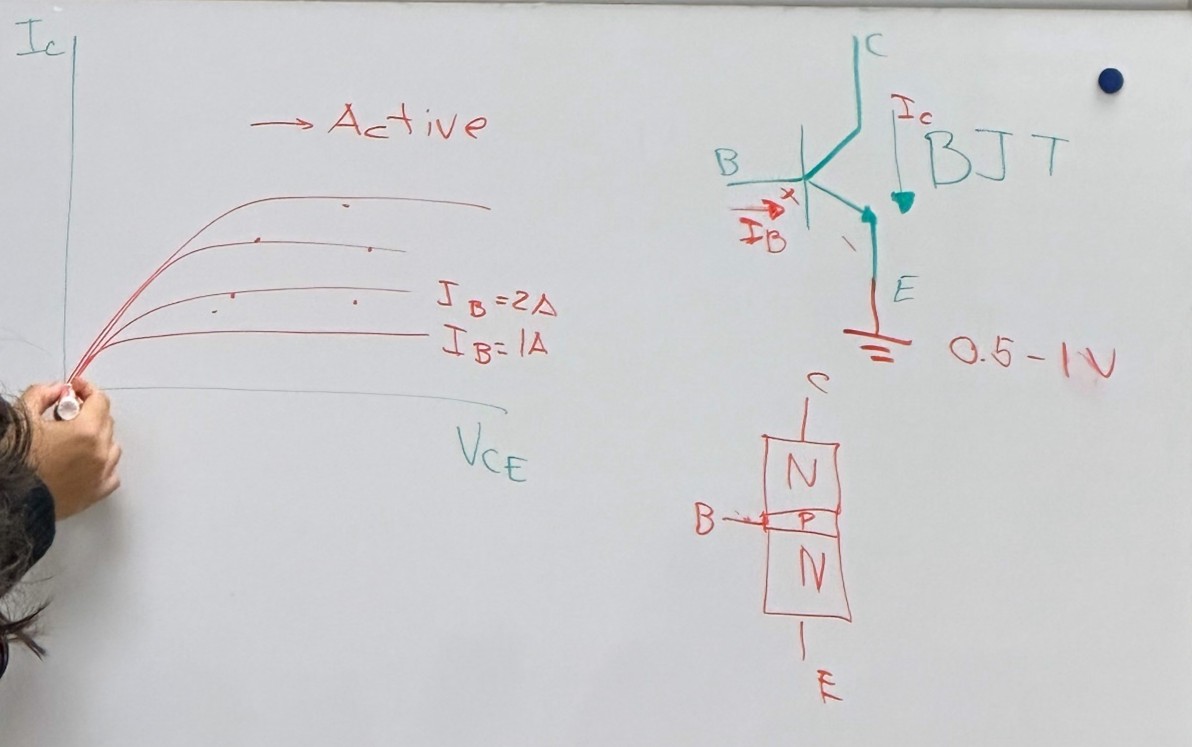 Ic
→ Active
IB=2A
IB=1A
VCE
C
B
Ic
BJT
IB
E
0.5-1V
C
N
B
P
N
E